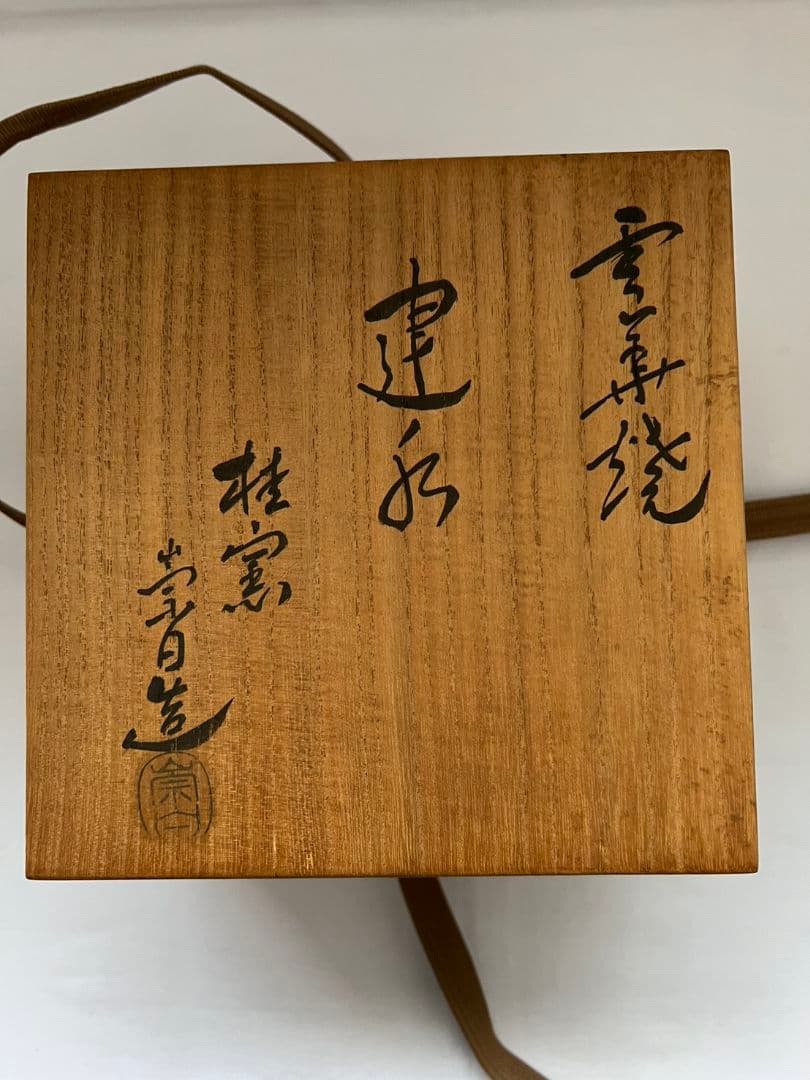 雲華焼
建水
桂窯
崇白造